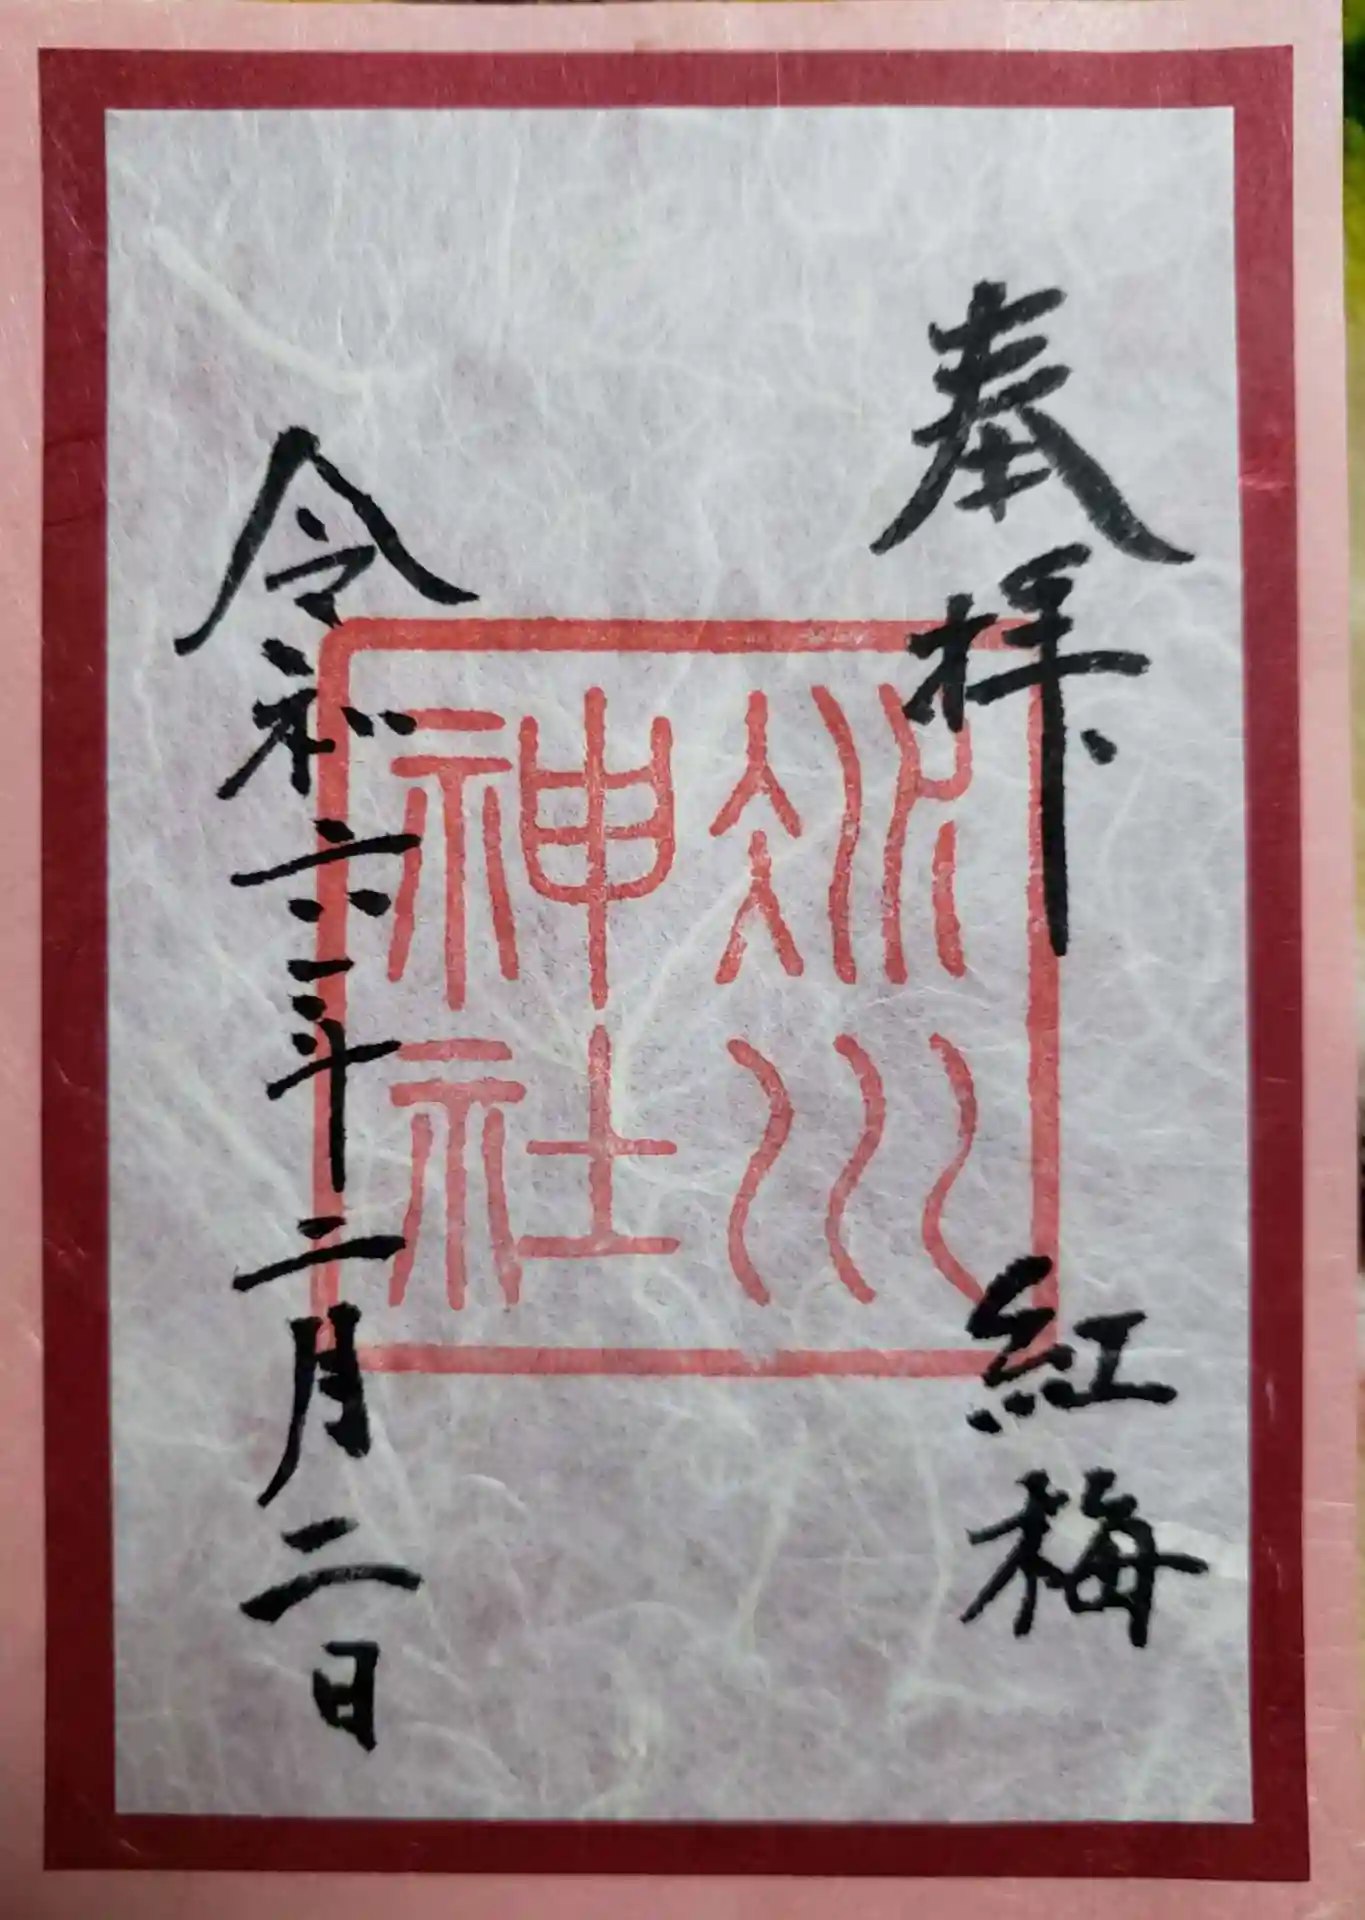 奉拝 紅梅
氷川
神社
令和六年二月二日